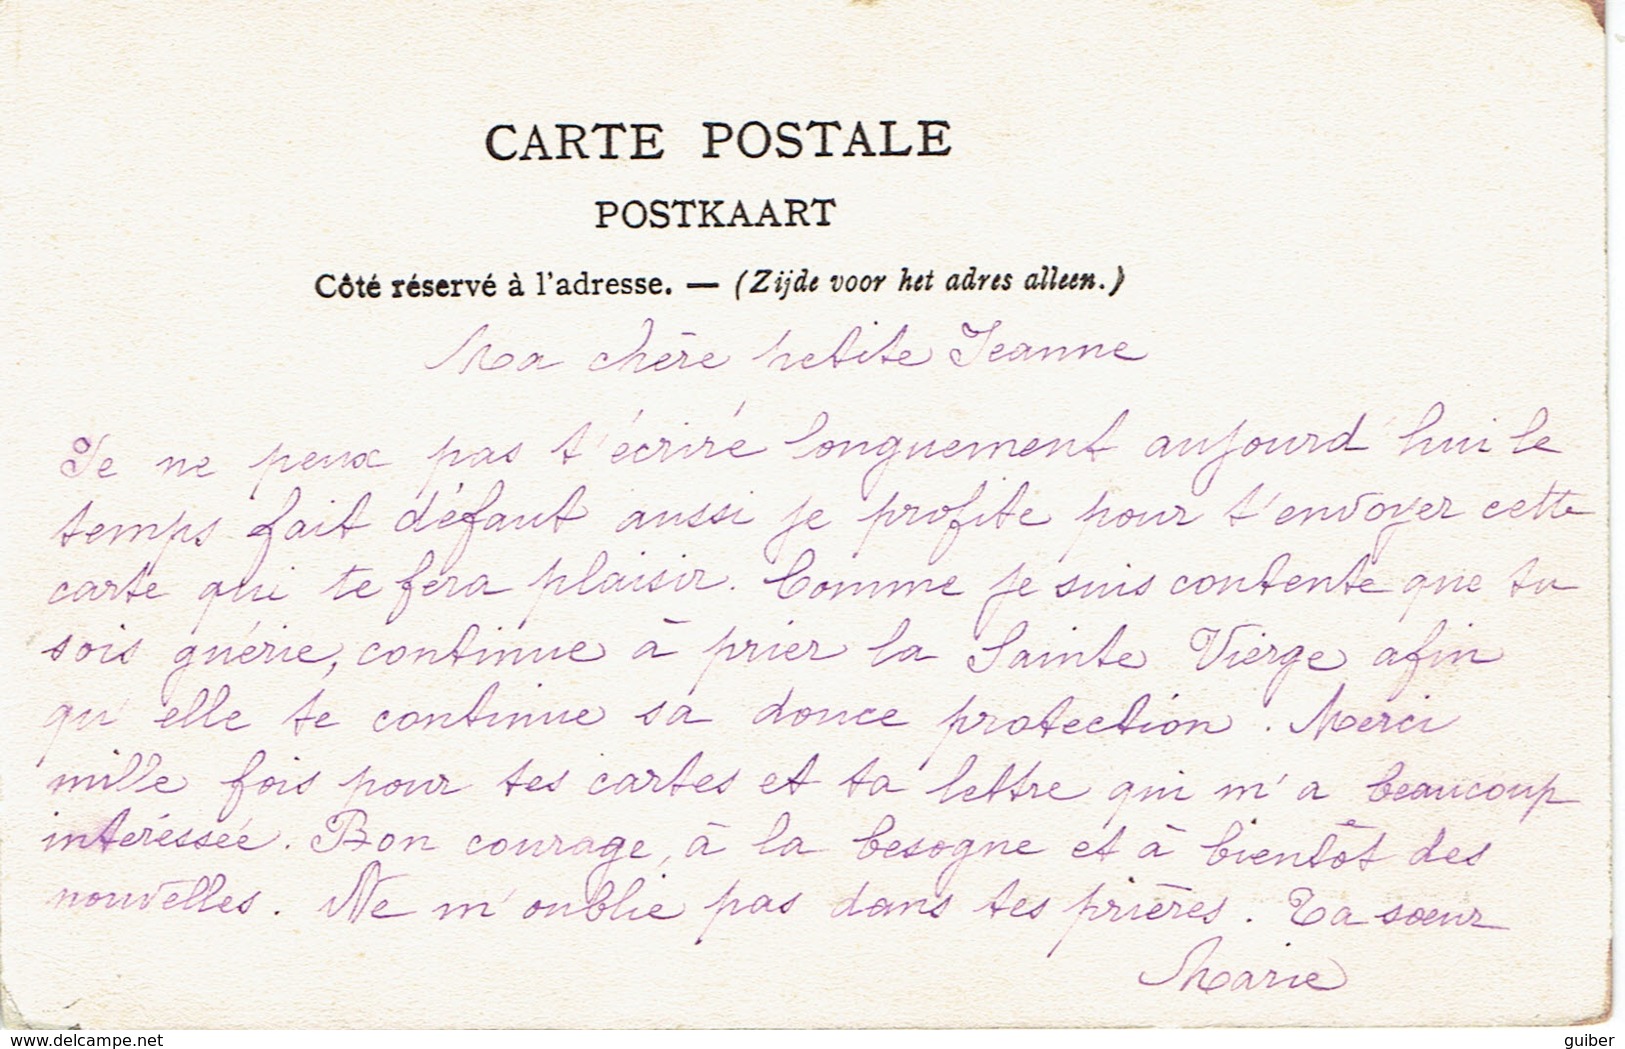 CARTE POSTALE
POSTKAART
Côté réservé à l'adresse. — (Zijde voor het adres alleen.)
Ma chère petite Jeanne
Je ne peux pas t'écrire longuement aujourd'hui le
temps fait défaut aussi je profite pour t'envoyer cette
carte qui te fera plaisir. Comme je suis contente que tu
sois guérie, continue à prier la Sainte Vierge afin
qu'elle te continue sa douce protection. Merci
mille fois pour tes cartes et ta lettre qui m'a beaucoup
intéréssée. Bon courage, à la besogne et à bientôt des
nouvelles. Ne m'oublie pas dans tes prières. Ta sœur
Marie
www.delcampe.net
guiber